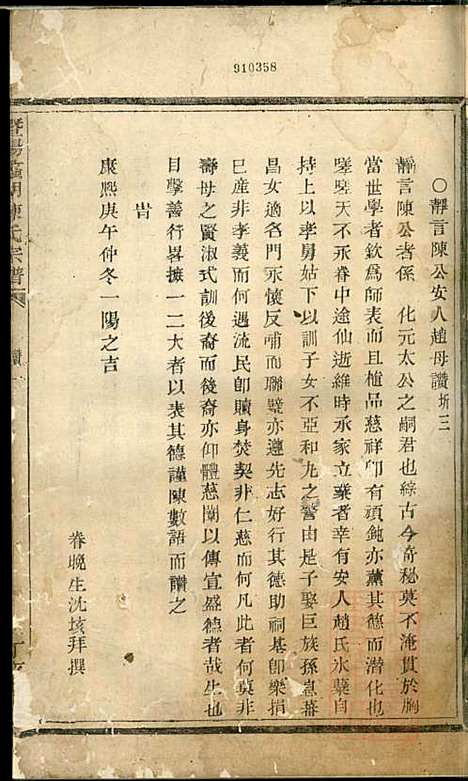 910358
○靜言陳公安人趙母讚圻三
靜言陳公者係 化元太公之嗣君也綜古今奇秘莫不淹貫於胸
當世學者欽為師表而且植品慈祥卽有頑鈍亦薰其德而潛化也
嗟嗟天不永眷中途仙逝維時承家立業者幸有安人趙氏氷蘗自
持上以孝舅姑下以訓子女不亞和丸之誓由是子娶巨族孫息蕃
昌女適名門永懷反哺而聯璧亦遵先志好行其德助祠基卽樂捐
己產非孝義而何遇流民卽贖身焚契非仁慈而何凡此者何莫非
壽母之賢淑式訓後裔而後裔亦仰體慈闈以傳宣盛德者哉生也
目擊善行畧摭一二大者以表其德謹陳數語而讚之
旹
康熙庚午仲冬一陽之吉
眷晚生沈垓拜撰
暨陽 陳氏宗譜
讚